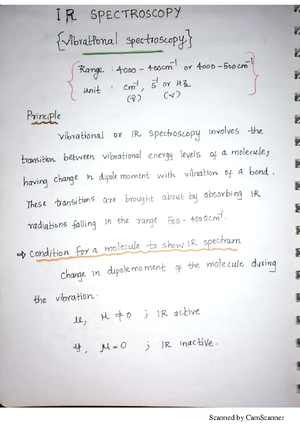 IR SPECTROSCOPY
{Vibrational spectroscopy}
Range : 4000 - 400cm⁻¹ or 4000-500cm⁻¹
unit : cm⁻¹, s⁻¹ or Hz
(ν̄) (ν)
Principle
Vibrational or IR spectroscopy involves the
transition between vibrational energy levels of a molecule,
having change in dipole moment with vibration of a bond.
These transitions are brought about by absorbing IR
radiations falling in the range 500-4000cm⁻¹.
→ Condition for a molecule to show IR spectrum
Change in dipole moment of the molecule during
the vibration.
μ ≠ 0 ; IR active
μ = 0 ; IR inactive.
Scanned by CamScanner